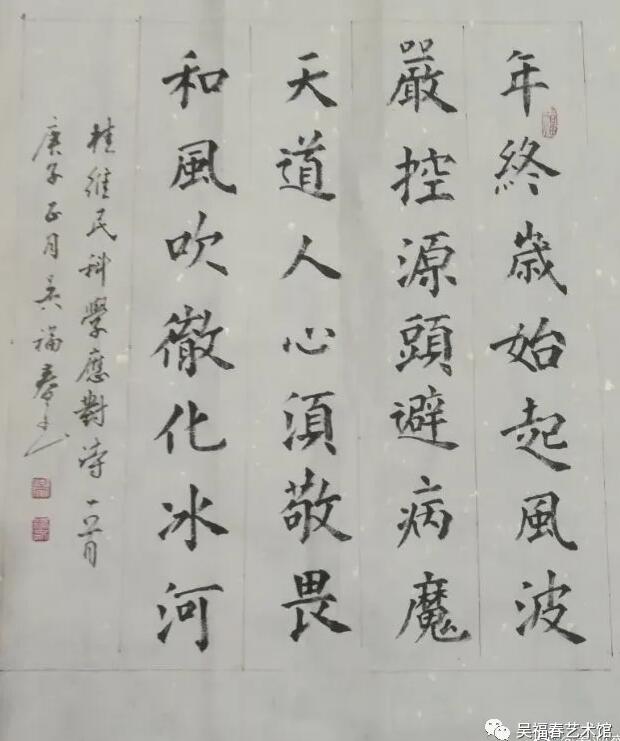 年終歲始起風波
嚴控源頭避病魔
天道人心須敬畏
和風吹徹化冰河
桂維民科學應對詩一首
庚子正月吳福春書
吴福春艺术馆